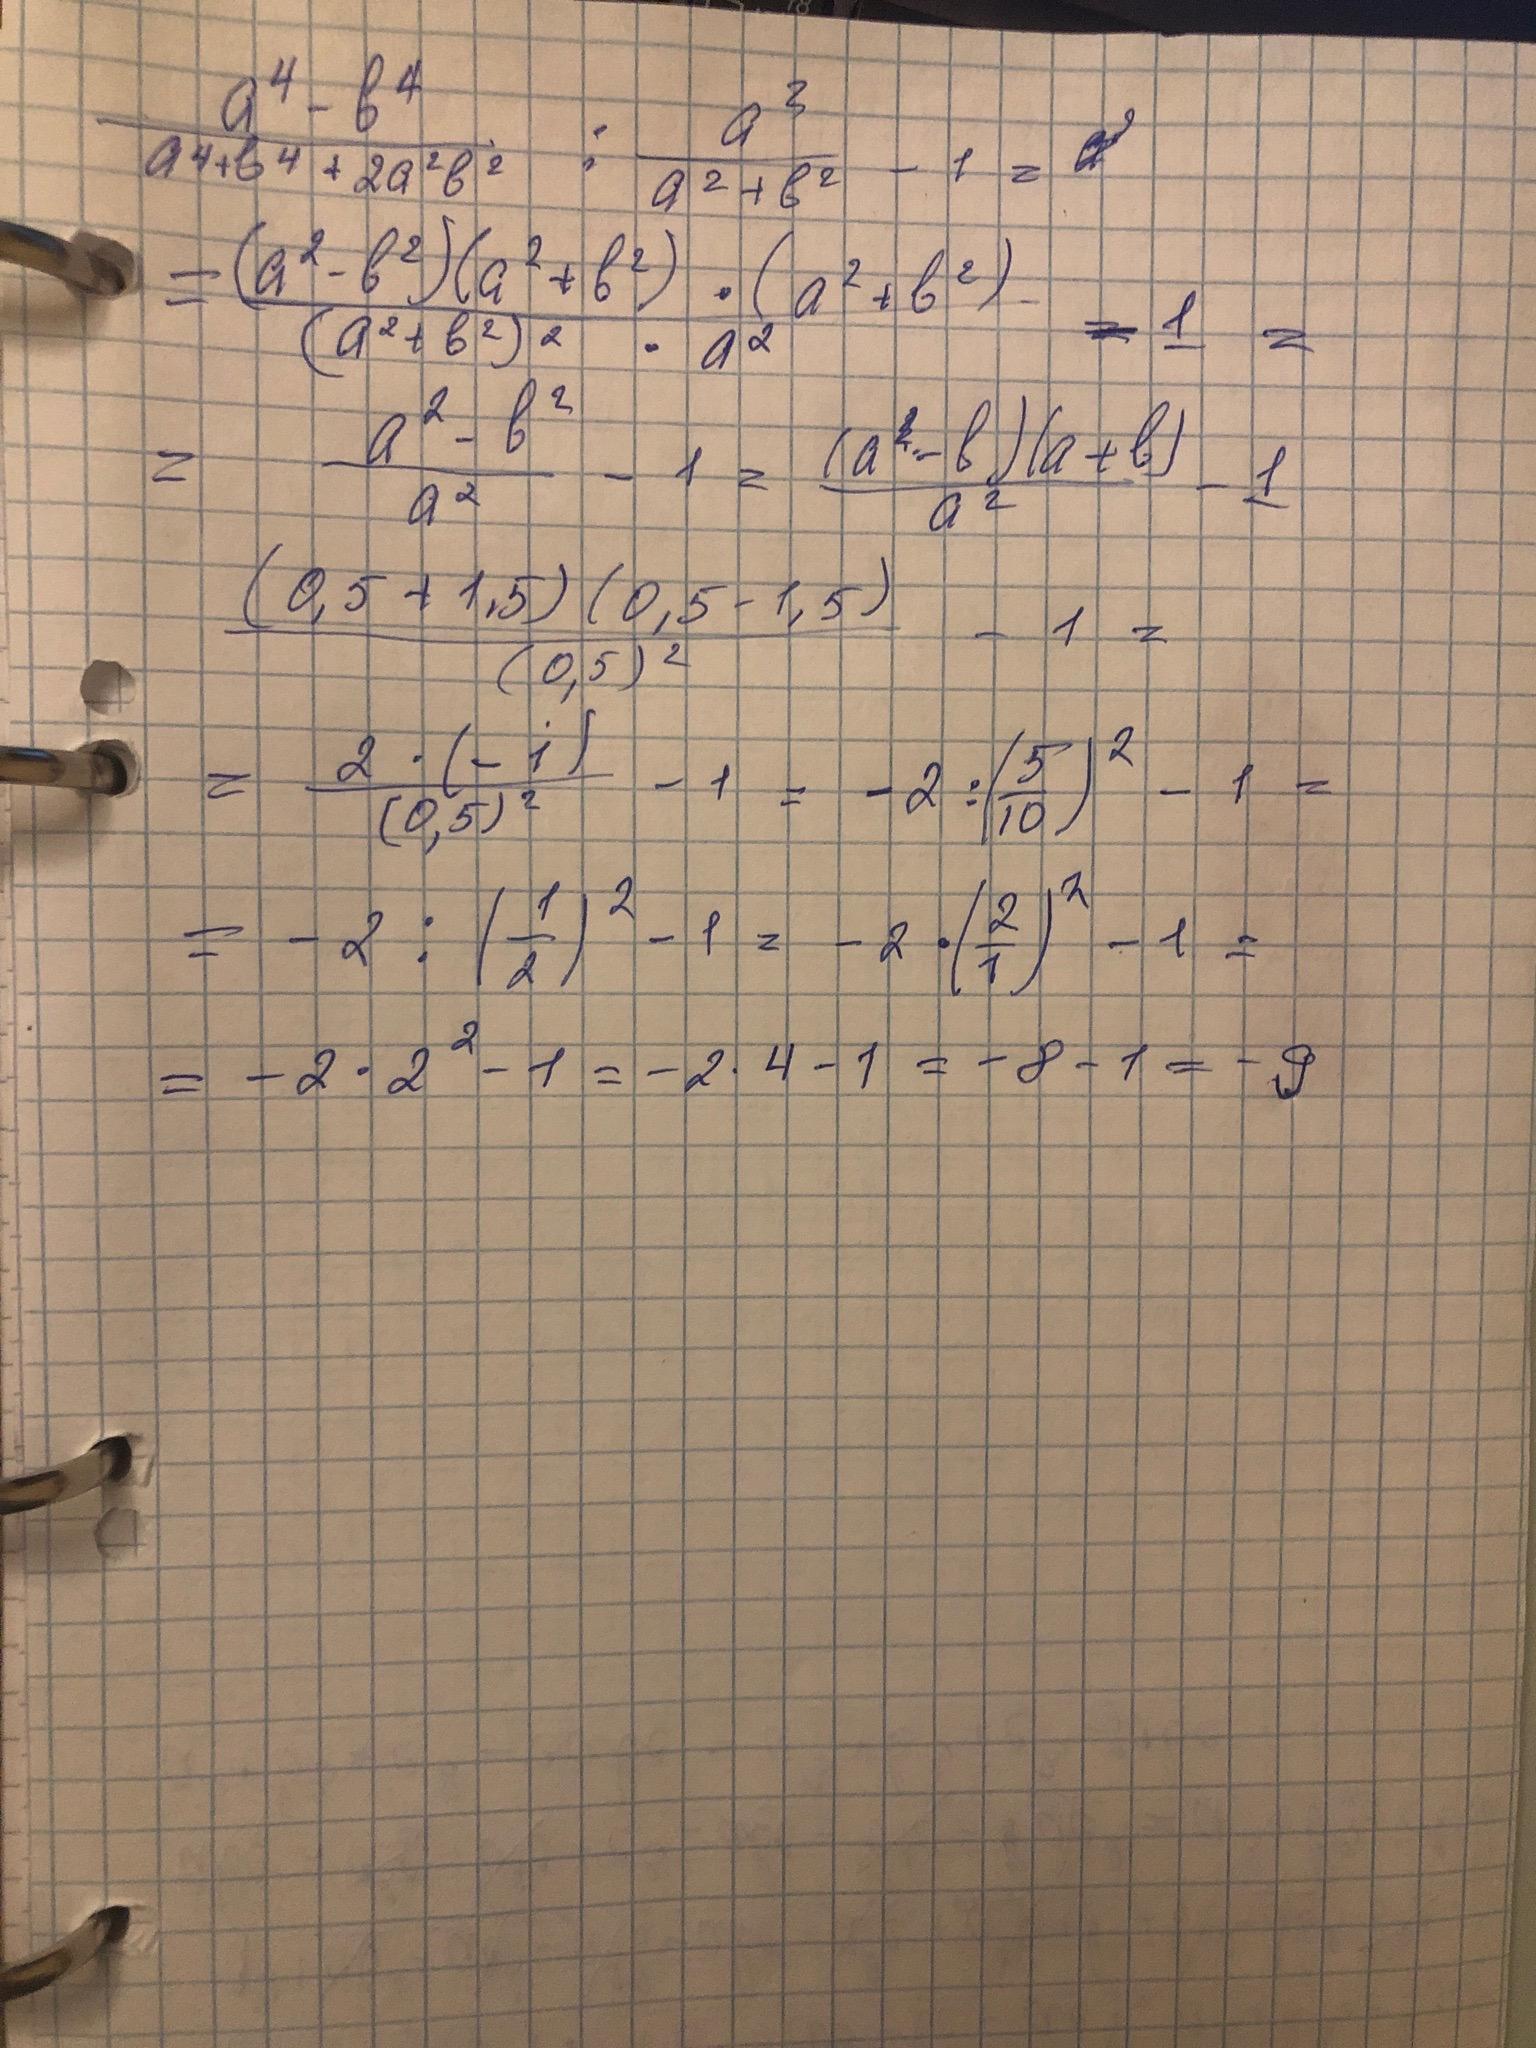 (a⁴ - b⁴)/(a⁴+b⁴+2a²b²) : a²/(a²+b²) - 1 =
= (a²-b²)(a²+b²)·(a²+b²)/((a²+b²)²·a²) - 1 =
= (a²-b²)/a² - 1 = (a-b)(a+b)/a² - 1
(0,5+1,5)(0,5-1,5)/(0,5)² - 1 =
= 2·(-1)/(0,5)² - 1 = -2:(5/10)² - 1 =
= -2 : (1/2)² - 1 = -2·(2/1)² - 1 =
= -2·2² - 1 = -2·4 - 1 = -8 - 1 = -9